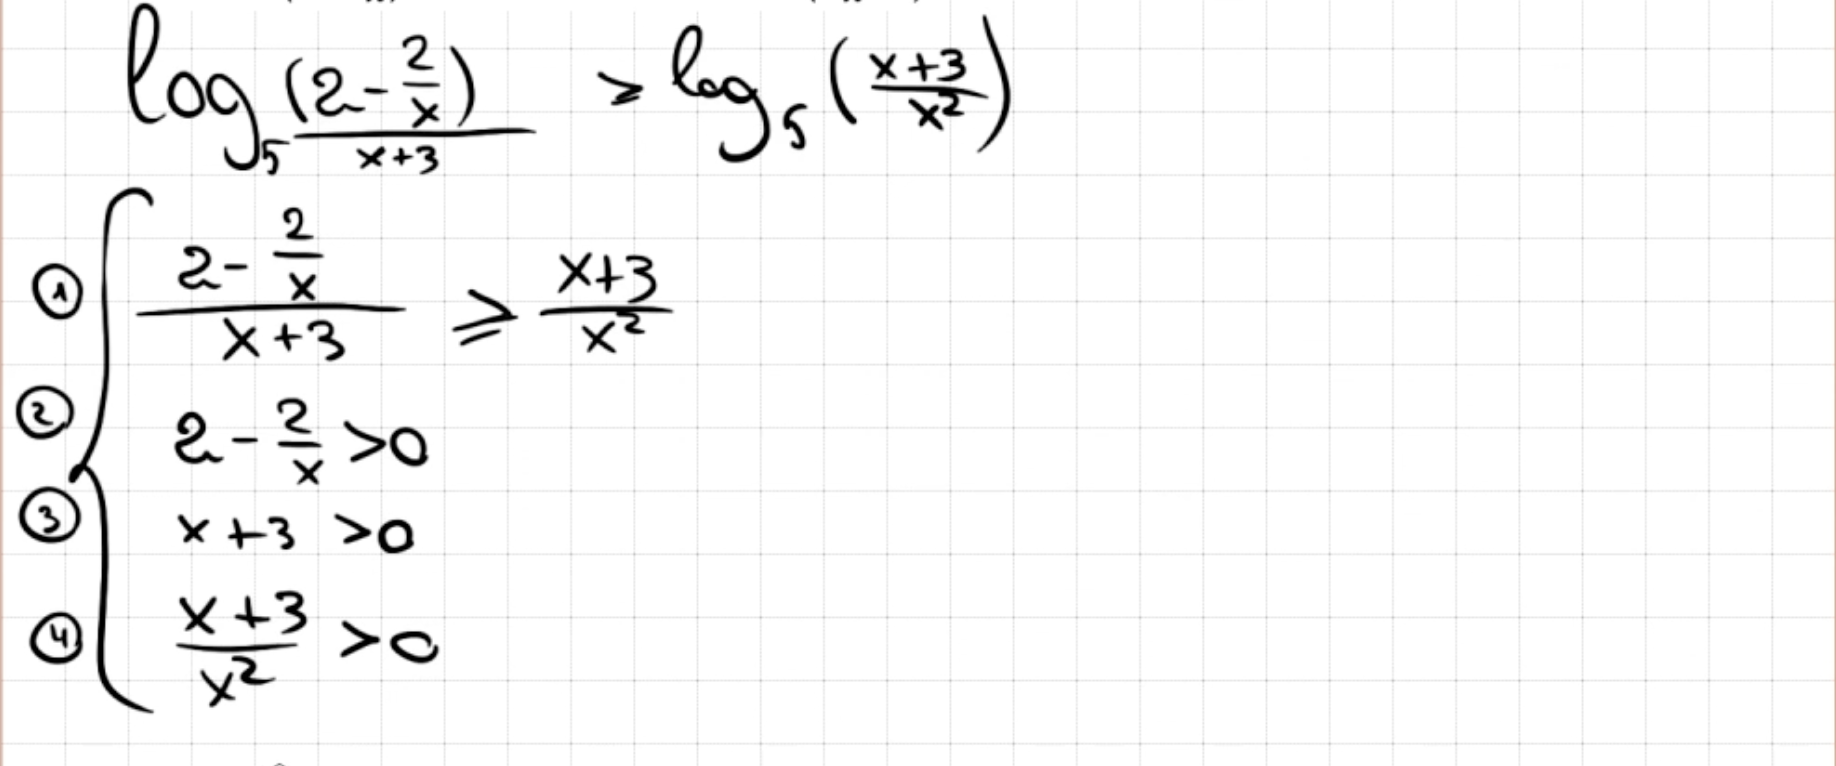 log₅ (2 - 2/x)/(x+3) ≥ log₅ ((x+3)/x²)
① (2 - 2/x)/(x+3) ⩾ (x+3)/x²
② 2 - 2/x > 0
③ x+3 > 0
④ (x+3)/x² > 0